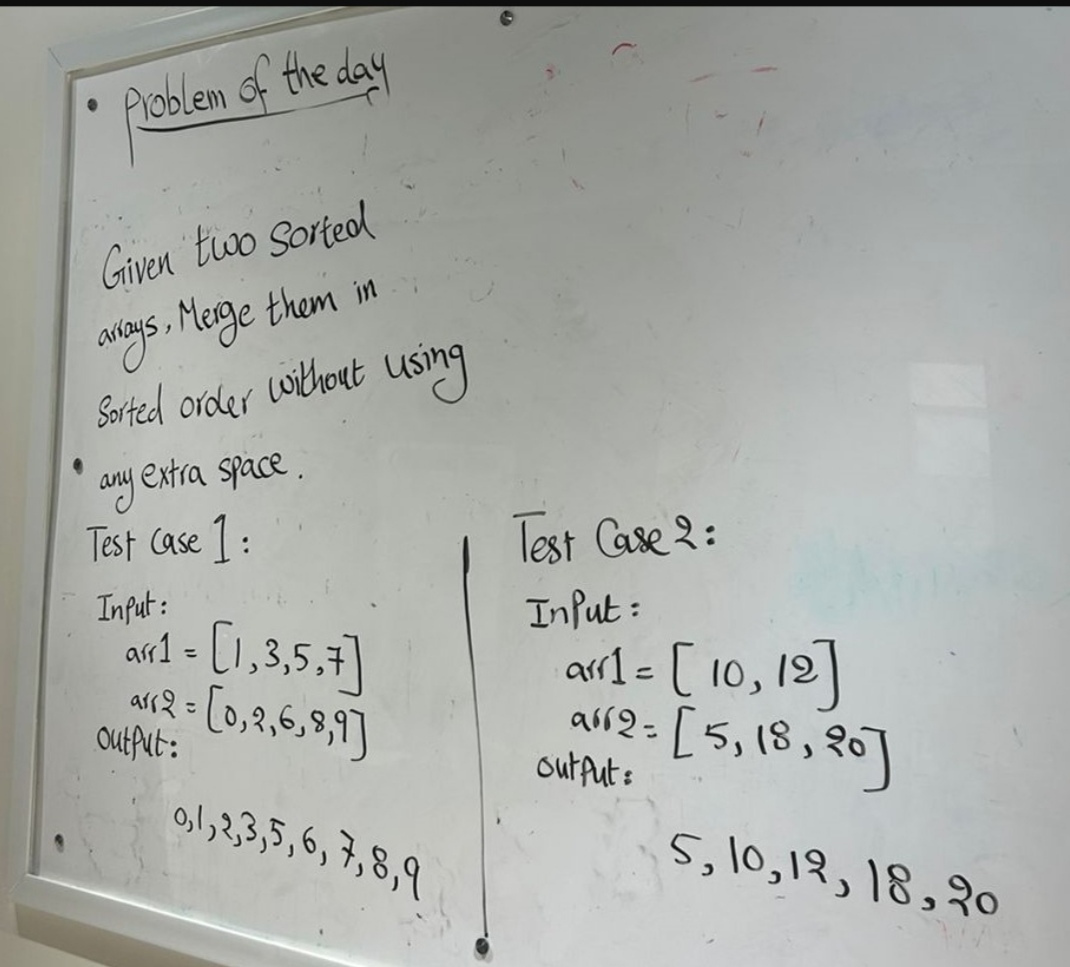 • Problem of the day
Given two sorted
arrays, Merge them in
Sorted order without using
any extra space.
Test Case 1:
Input:
arr1 = [1,3,5,7]
arr2 = [0,2,6,8,9]
Output:
0,1,2,3,5,6,7,8,9
Test Case 2:
Input:
arr1 = [10, 12]
arr2 = [5, 18, 20]
Output:
5, 10, 12, 18, 20